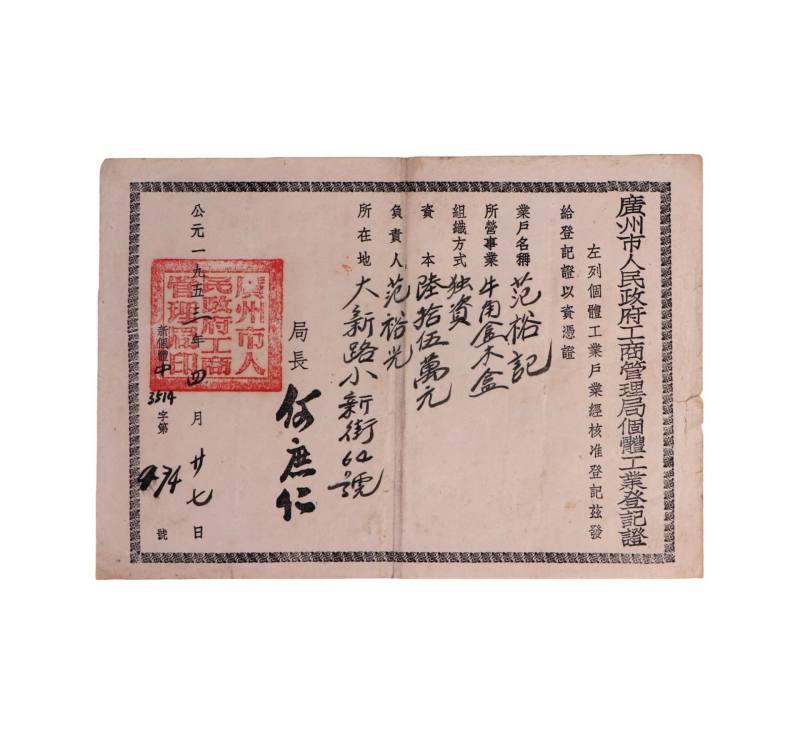 廣州市人民政府工商管理局個體工業登記證
左列個體工業戶業經核准登記茲發
給登記證以資憑證
業戶名稱 范裕記
所營事業 牛角盒木盒
組織方式 独資
資本 陸拾伍萬元
負責人 范裕光
所在地 大新路小新街62號
局長 何庶仁
廣州市人
民政府工商
管理局印
公元一九五二年四月廿七日
新個體中3514字第434號